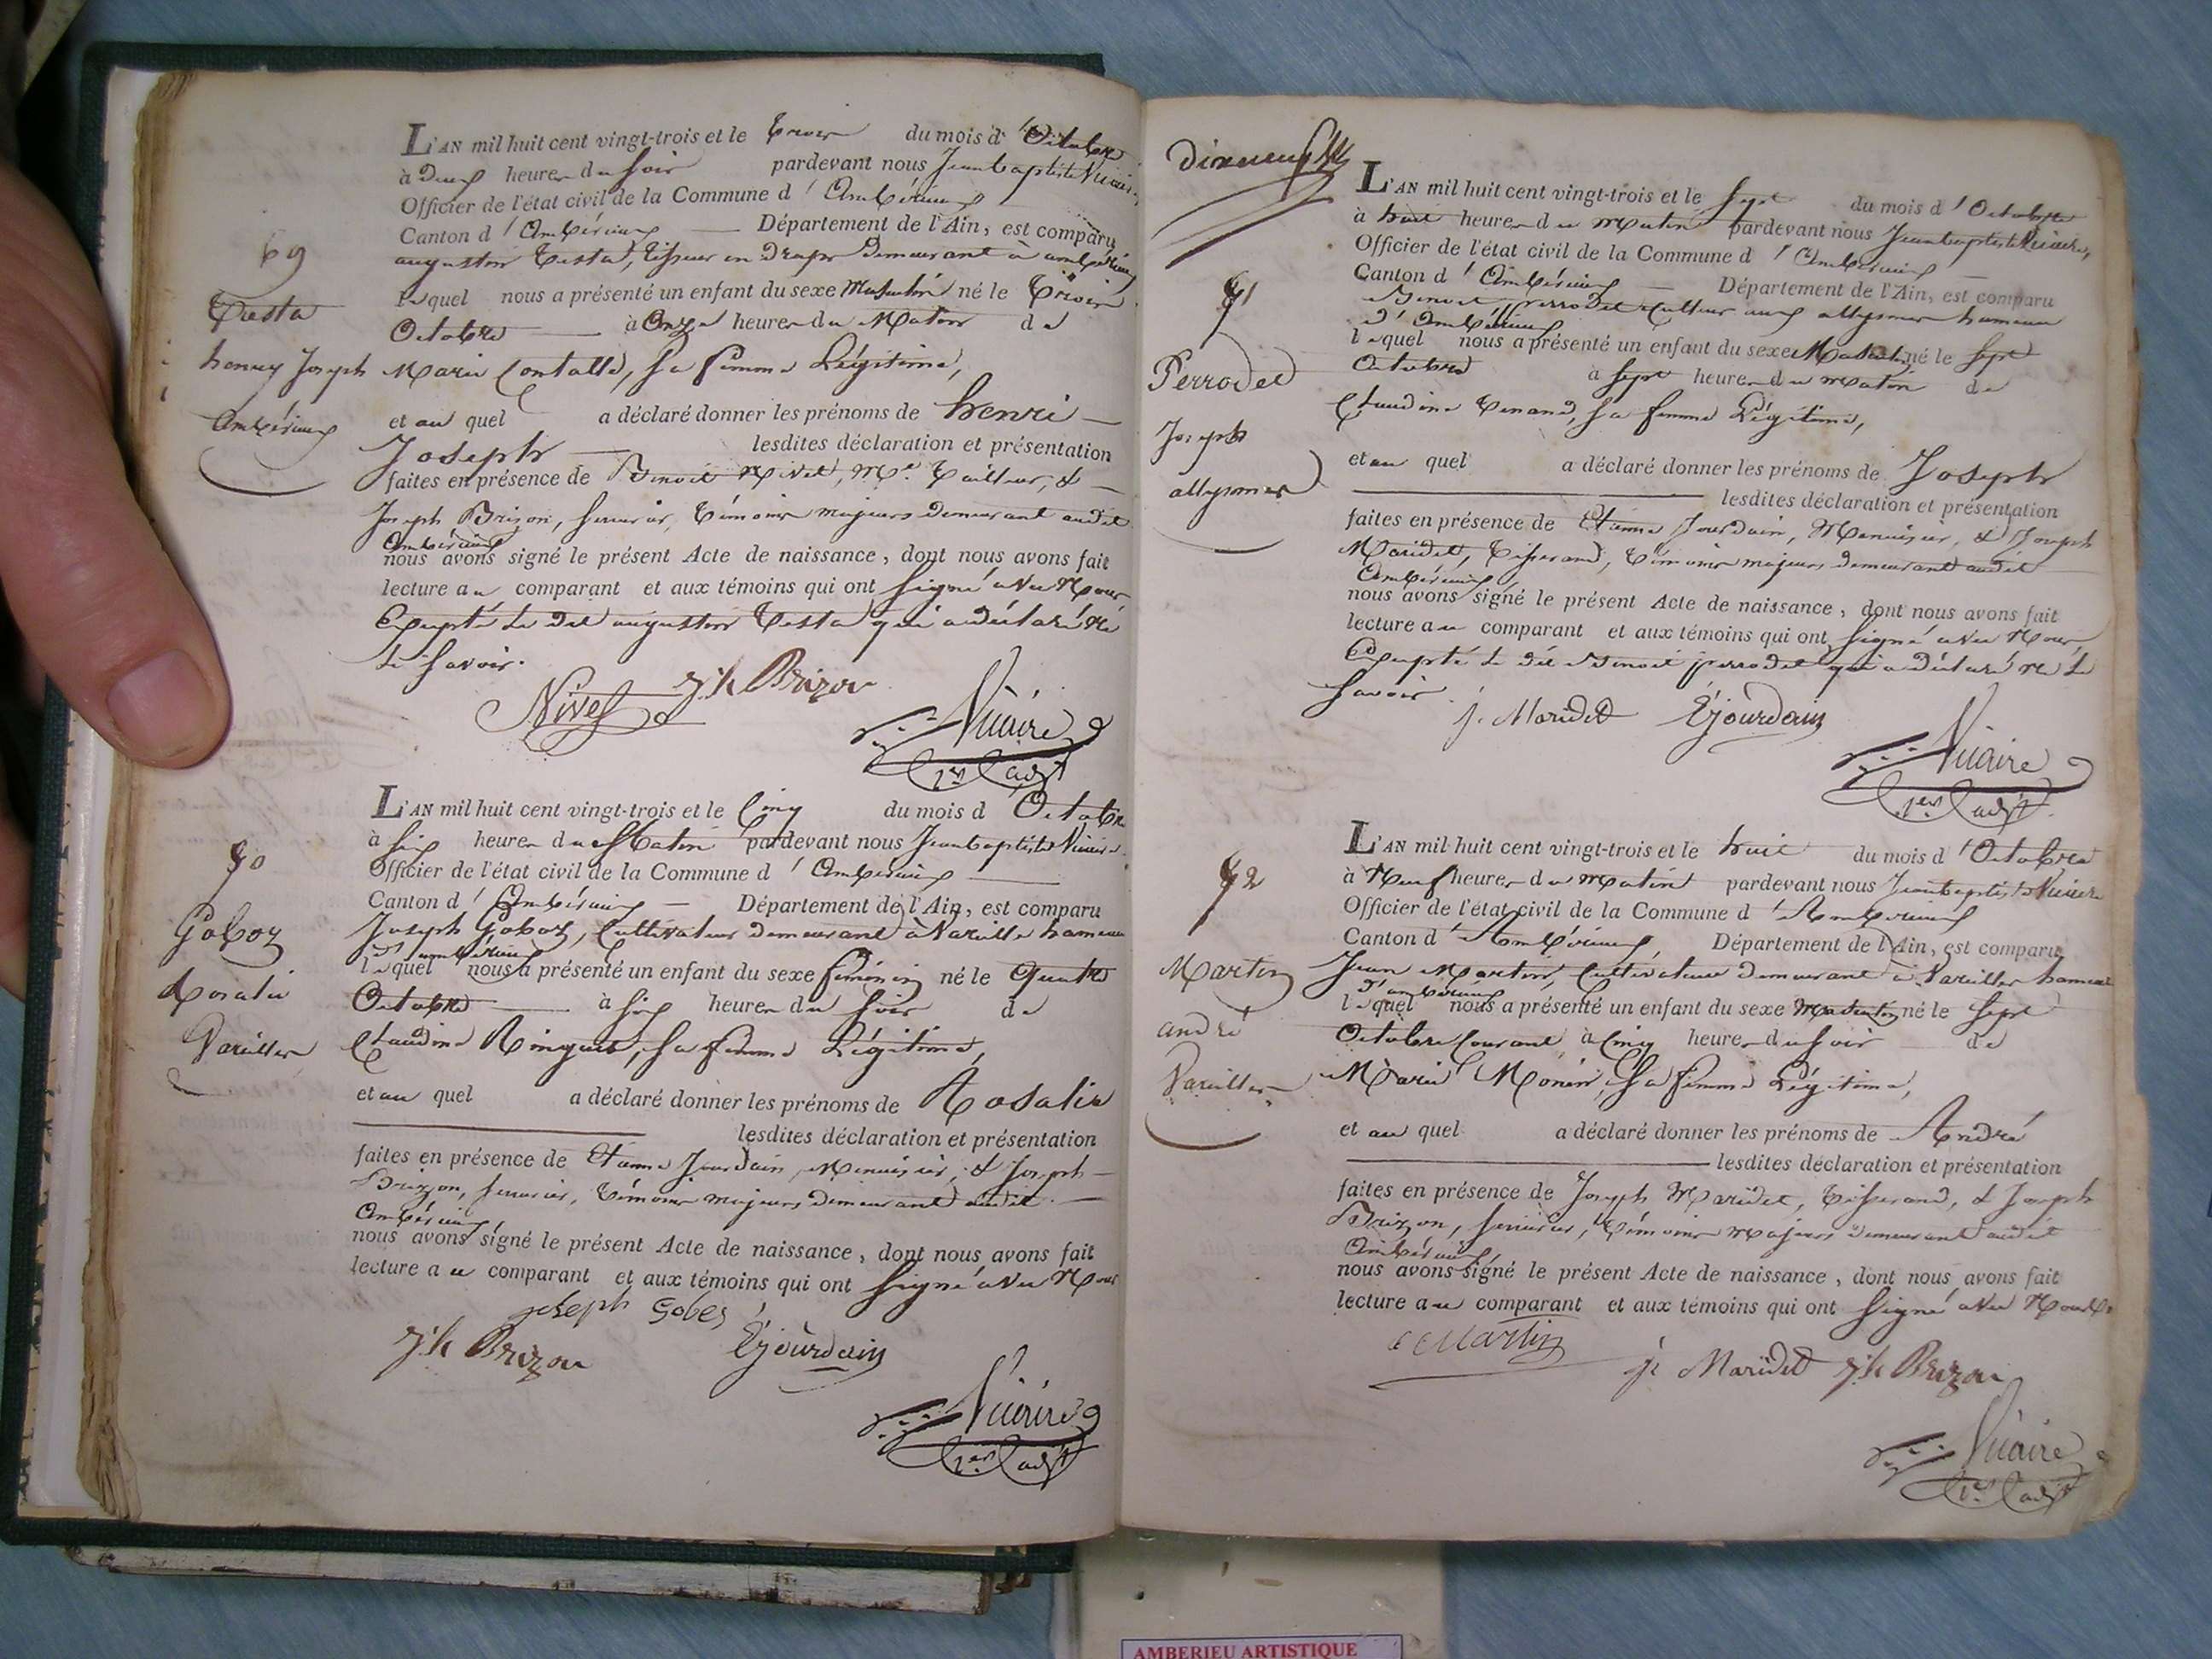 69
Testa
henry Joseph
Ambérieux
L'AN mil huit cent vingt-trois et le trois du mois d'Octobre
à deux heures du soir pardevant nous Jean baptiste Vicaire
Officier de l'état civil de la Commune d'Ambérieux
Canton d'Ambérieux — Département de l'Ain, est comparu
augustin Testa, tisseur en draps demeurant à ambérieux
lequel nous a présenté un enfant du sexe Masculin né le trois
Octobre — à Onze heures du Matin de
Marie Contalle, sa femme Légitime,
et au quel a déclaré donner les prénoms de henri —
Joseph — lesdites déclaration et présentation
faites en présence de Benoit Nivel, Md. Tailleur, &
Joseph Brizon, serrurier, témoins majeurs demeurant audit
Ambérieux
nous avons signé le présent Acte de naissance, dont nous avons fait
lecture au comparant et aux témoins qui ont signé avec Nous
Excepté le dit augustin Testa qui a déclaré ne
le savoir.
Nivel Jh Brizon
Vicaire
1er adjt
70
Goboz
Rosalie
Vareilles
L'AN mil huit cent vingt-trois et le Cinq du mois d'Octobre
à six heures du Matin pardevant nous Jean baptiste Vicaire
Officier de l'état civil de la Commune d'Ambérieux —
Canton d'Ambérieux — Département de l'Ain, est comparu
Joseph Goboz, Cultivateur demeurant à Vareilles hameau
d'ambérieux
lequel nous a présenté un enfant du sexe féminin né le Quatre
Octobre — à six heures du soir de
Claudine Ringuet, sa femme Légitime,
et au quel a déclaré donner les prénoms de Rosalie
lesdites déclaration et présentation
faites en présence de Etienne Jourdain, Menuisier, & Joseph
Brizon, serrurier, témoins majeurs demeurant audit
Ambérieux
nous avons signé le présent Acte de naissance, dont nous avons fait
lecture au comparant et aux témoins qui ont signé avec Nous
joseph Gobes
Jh Brizon E jourdain
Vicaire
1er adjt
dixneuf
71
Perrodet
Joseph
allymes
L'AN mil huit cent vingt-trois et le sept du mois d'Octobre
à huit heures du Matin pardevant nous Jean baptiste Vicaire,
Officier de l'état civil de la Commune d'Ambérieux —
Canton d'Ambérieux — Département de l'Ain, est comparu
Benoit perrodet Cultivr aux allymes hameau
d'Ambérieux
lequel nous a présenté un enfant du sexe Masculin né le sept
Octobre à sept heures du matin de
Claudine Tenand, sa femme Légitime,
et au quel a déclaré donner les prénoms de Joseph
lesdites déclaration et présentation
faites en présence de Etienne Jourdain, Menuisier, & Joseph
Maridet, Tisserand, témoins majeurs demeurant audit
Ambérieux
nous avons signé le présent Acte de naissance, dont nous avons fait
lecture au comparant et aux témoins qui ont signé avec Nous,
Excepté le dit Benoit perrodet qui a déclaré ne le
savoir.
j. Maridet E jourdain
Vicaire
1er adjt
72
Martin
andré
Vareilles
L'AN mil huit cent vingt-trois et le huit du mois d'Octobre
à Neuf heures du matin pardevant nous Jean baptiste Vicaire
Officier de l'état civil de la Commune d'Ambérieux
Canton d'Ambérieux, Département de l'Ain, est comparu
Jean Martin, Cultivateur demeurant à Vareilles hameau
d'ambérieux
lequel nous a présenté un enfant du sexe Masculin né le sept
Octobre Courant à Cinq heures du soir de
Marie Monin, sa femme Légitime,
et au quel a déclaré donner les prénoms de André
lesdites déclaration et présentation
faites en présence de Joseph Maridet, Tisserand, & Joseph
Brizon, serrurier, témoins majeurs demeurant audit
Ambérieux
nous avons signé le présent Acte de naissance, dont nous avons fait
lecture au comparant et aux témoins qui ont signé avec Nous
Martin
j. Maridet Jh Brizon
Vicaire
1er adjt
AMBERIEU ARTISTIQUE